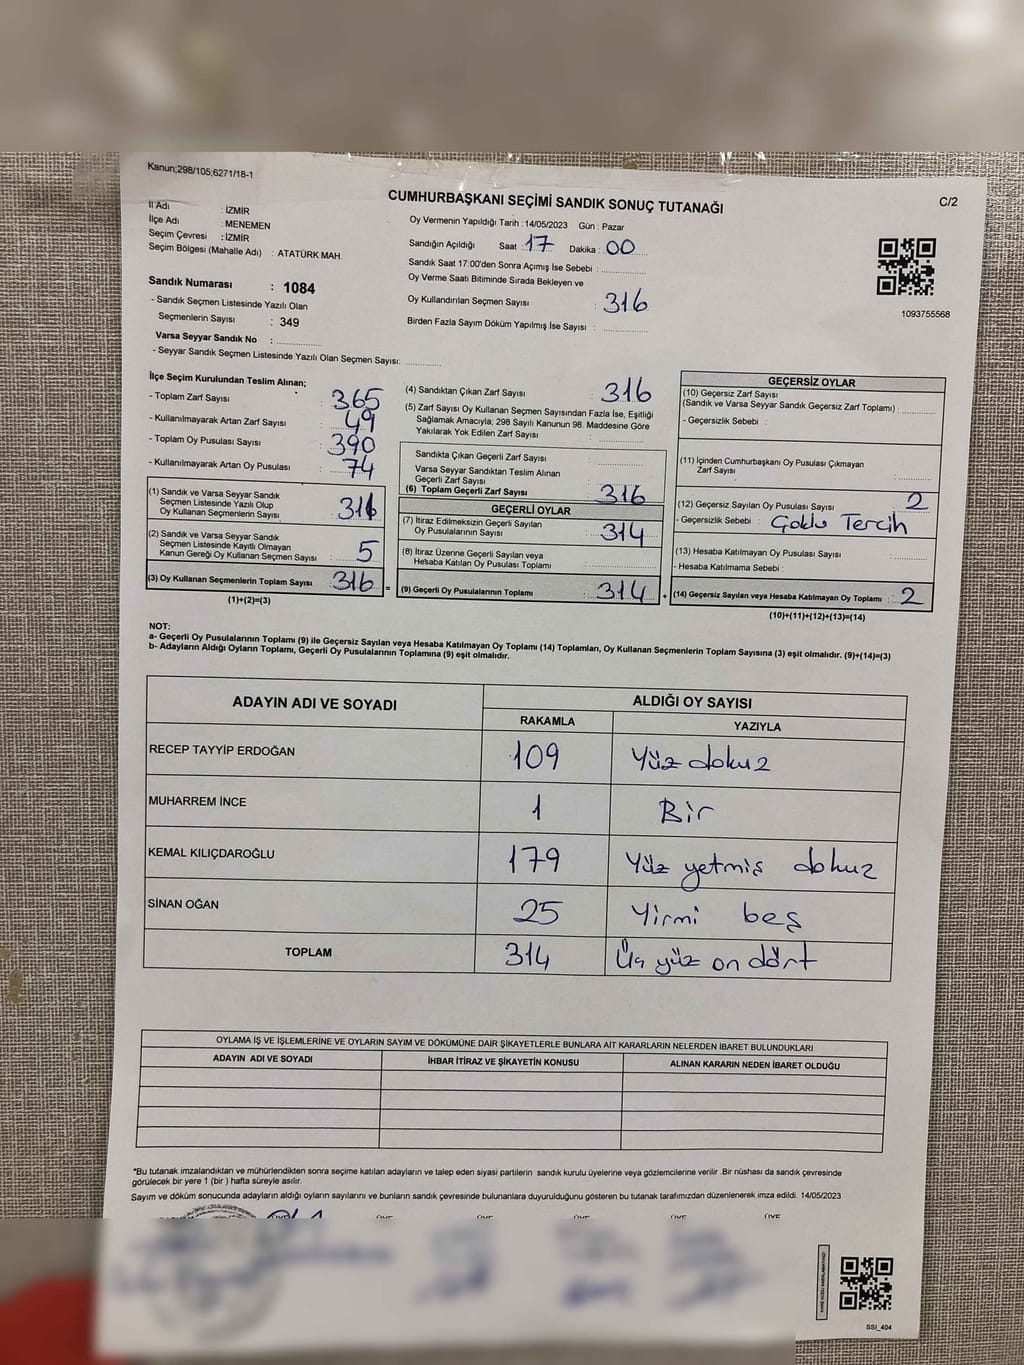 Kanun;298/105;6271/18-1
CUMHURBAŞKANI SEÇİMİ SANDIK SONUÇ TUTANAĞI
C/2
İl Adı : İZMİR
İlçe Adı : MENEMEN
Seçim Çevresi : İZMİR
Seçim Bölgesi (Mahalle Adı) : ATATÜRK MAH.
Oy Vermenin Yapıldığı Tarih : 14/05/2023 Gün : Pazar
Sandığın Açıldığı Saat : 17 Dakika : 00
Sandık Saat 17:00'den Sonra Açımış İse Sebebi :
Oy Verme Saati Bitiminde Sırada Bekleyen ve
Oy Kullandırılan Seçmen Sayısı : 316
Birden Fazla Sayım Döküm Yapılmış İse Sayısı :
1093755568
Sandık Numarası : 1084
- Sandık Seçmen Listesinde Yazılı Olan
Seçmenlerin Sayısı : 349
Varsa Seyyar Sandık No :
- Seyyar Sandık Seçmen Listesinde Yazılı Olan Seçmen Sayısı:
İlçe Seçim Kurulundan Teslim Alınan;
- Toplam Zarf Sayısı : 365
- Kullanılmayarak Artan Zarf Sayısı : 49
- Toplam Oy Pusulası Sayısı : 390
- Kullanılmayarak Artan Oy Pusulası : 74
(1) Sandık ve Varsa Seyyar Sandık
Seçmen Listesinde Yazılı Olup
Oy Kullanan Seçmenlerin Sayısı : 311
(2) Sandık ve Varsa Seyyar Sandık
Seçmen Listesinde Kayıtlı Olmayan
Kanun Gereği Oy Kullanan Seçmen Sayısı : 5
(3) Oy Kullanan Seçmenlerin Toplam Sayısı : 316 =
(1)+(2)=(3)
(4) Sandıktan Çıkan Zarf Sayısı : 316
(5) Zarf Sayısı Oy Kullanan Seçmen Sayısından Fazla İse, Eşitliği
Sağlamak Amacıyla; 298 Sayılı Kanunun 98. Maddesine Göre
Yakılarak Yok Edilen Zarf Sayısı :
Sandıkta Çıkan Geçerli Zarf Sayısı :
Varsa Seyyar Sandıktan Teslim Alınan
Geçerli Zarf Sayısı :
(6) Toplam Geçerli Zarf Sayısı : 316
GEÇERLİ OYLAR
(7) İtiraz Edilmeksizin Geçerli Sayılan
Oy Pusulalarının Sayısı : 314
(8) İtiraz Üzerine Geçerli Sayılan veya
Hesaba Katılan Oy Pusulası Toplamı :
(9) Geçerli Oy Pusulalarının Toplamı : 314 +
GEÇERSİZ OYLAR
(10) Geçersiz Zarf Sayısı
(Sandık ve Varsa Seyyar Sandık Geçersiz Zarf Toplamı) :
- Geçersizlik Sebebi :
(11) İçinden Cumhurbaşkanı Oy Pusulası Çıkmayan
Zarf Sayısı :
(12) Geçersiz Sayılan Oy Pusulası Sayısı : 2
- Geçersizlik Sebebi : Çoklu Tercih
(13) Hesaba Katılmayan Oy Pusulası Sayısı :
- Hesaba Katılmama Sebebi :
(14) Geçersiz Sayılan veya Hesaba Katılmayan Oy Toplamı : 2
(10)+(11)+(12)+(13)=(14)
NOT:
a- Geçerli Oy Pusulalarının Toplamı (9) ile Geçersiz Sayılan veya Hesaba Katılmayan Oy Toplamı (14) Toplamları, Oy Kullanan Seçmenlerin Toplam Sayısına (3) eşit olmalıdır. (9)+(14)=(3)
b- Adayların Aldığı Oyların Toplamı, Geçerli Oy Pusulalarının Toplamına (9) eşit olmalıdır.
ADAYIN ADI VE SOYADI ALDIĞI OY SAYISI
RAKAMLA YAZIYLA
RECEP TAYYİP ERDOĞAN 109 Yüz dokuz
MUHARREM İNCE 1 Bir
KEMAL KILIÇDAROĞLU 179 Yüz yetmiş dokuz
SİNAN OĞAN 25 Yirmi beş
TOPLAM 314 Üç yüz on dört
OYLAMA İŞ VE İŞLEMLERİNE VE OYLARIN SAYIM VE DÖKÜMÜNE DAİR ŞİKAYETLERLE BUNLARA AİT KARARLARIN NELERDEN İBARET BULUNDUKLARI
ADAYIN ADI VE SOYADI İHBAR İTİRAZ VE ŞİKAYETİN KONUSU ALINAN KARARIN NEDEN İBARET OLDUĞU
*Bu tutanak imzalandıktan ve mühürlendikten sonra seçime katılan adayların ve talep eden siyasi partilerin sandık kurulu üyelerine veya gözlemcilerine verilir .Bir nüshası da sandık çevresinde
görülecek bir yere 1 (bir ) hafta süreyle asılır.
Sayım ve döküm sonucunda adayların aldığı oyların sayılarını ve bunların sandık çevresinde bulunanlara duyurulduğunu gösteren bu tutanak tarafımızdan düzenlenerek imza edildi. 14/05/2023
ÜYE ÜYE ÜYE ÜYE ÜYE
SSİ_404